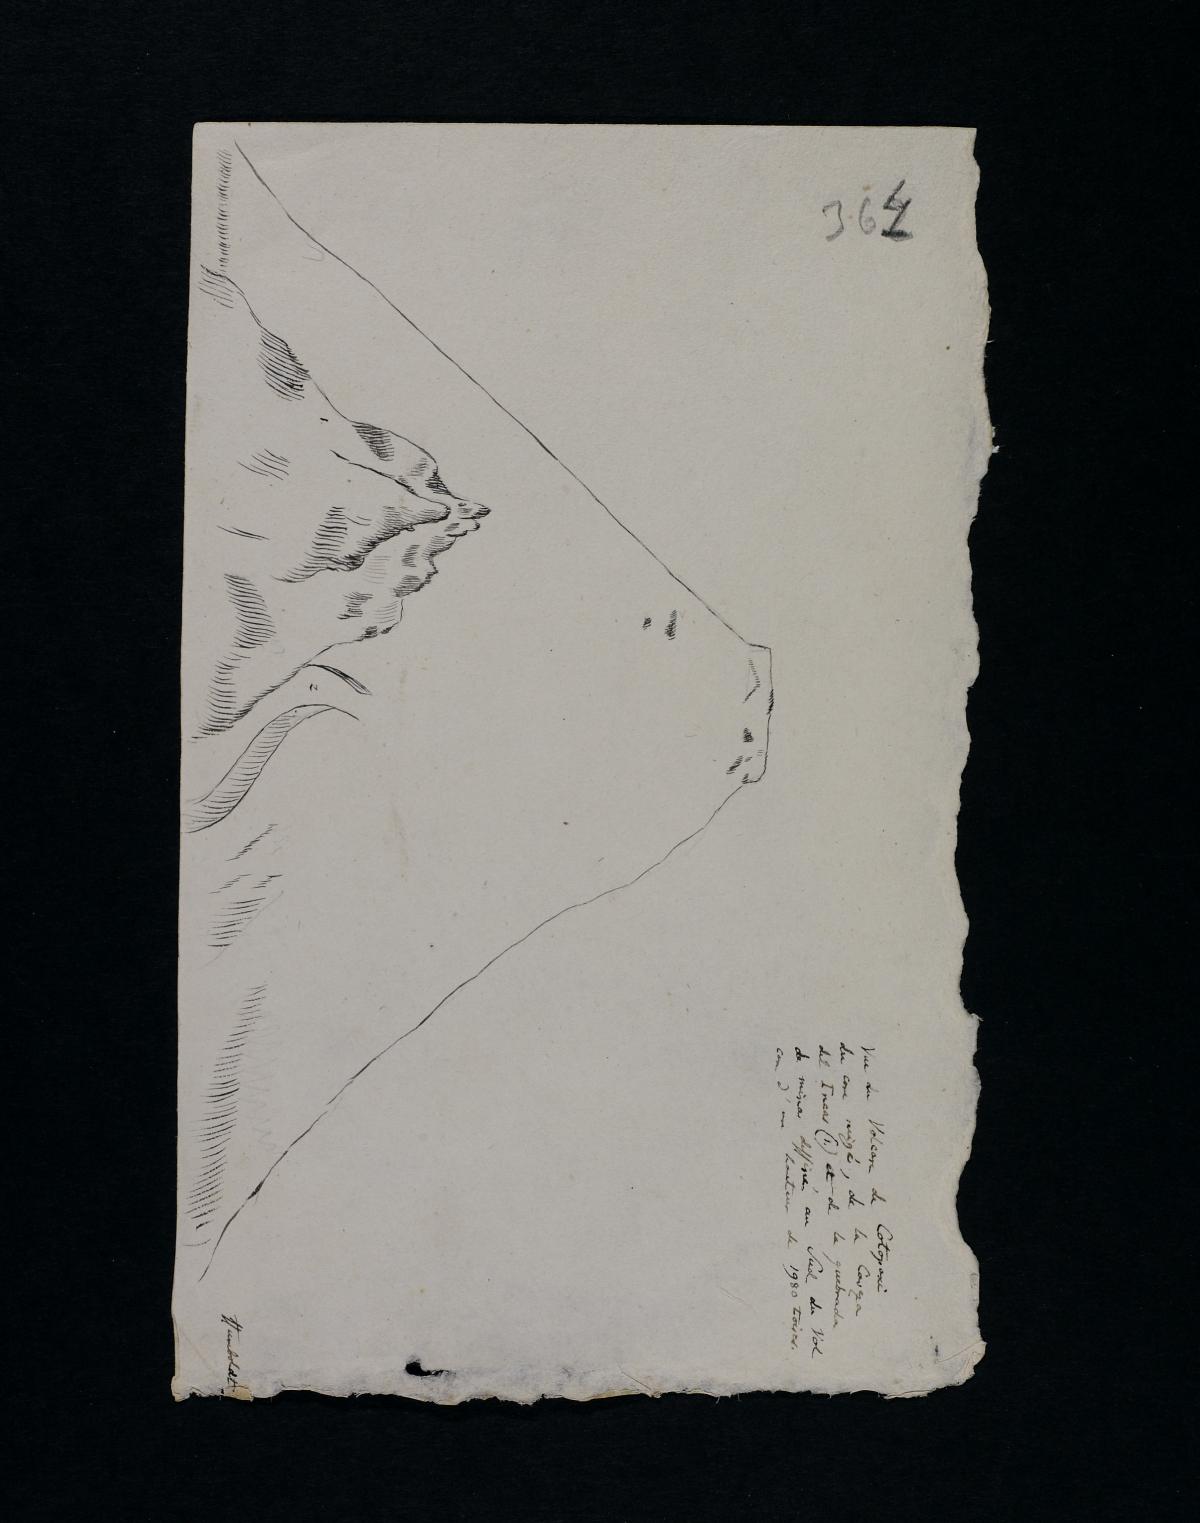 364
Vue du Volcan de Cotopaxi
du cone neigé, de la Caveza
del Incas (1.) et de la quebrada
de minas dessinés au Sud du Vol
can d'une hauteur de 1980 toises.
1
2
Humboldt